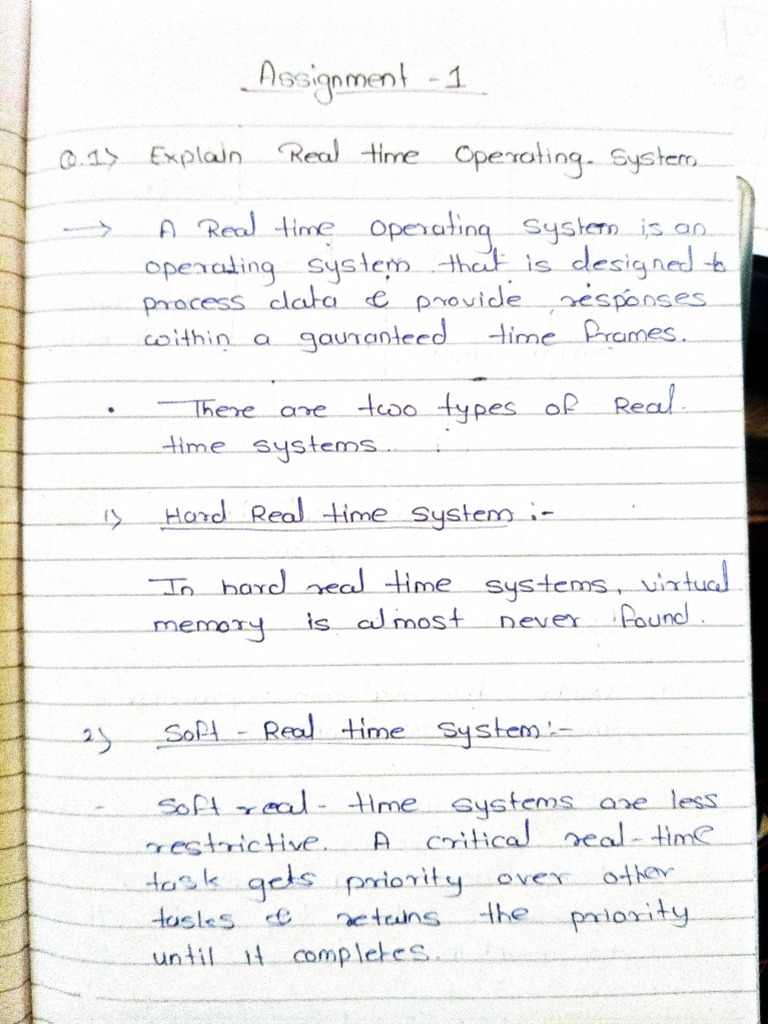 Assignment - 1
Q.1> Explain Real time Operating. System
→ A Real time operating system is an
operating system that is designed to
process data & provide responses
within a gauranteed time frames.
• There are two types of Real
time systems.
1> Hard Real time system :-
In hard real time systems, virtual
memory is almost never found.
2) Soft - Real time system:-
- Soft real-time systems are less
restrictive. A critical real-time
task gets priority over other
tasks & retains the priority
until it completes.